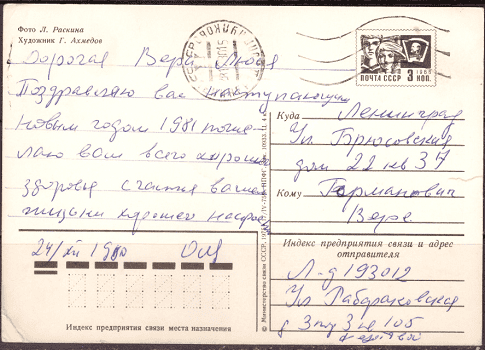 Фото Л. Раскина
Художник Г. Ахмедов
Дорогая Вера Люся
Поздравляю вас наступающим
новым годом 1981 поже
лаю вам всего хороше
здоровья счастья в вашей
жизни хорошего
24/XII 1980 Оля
ПОЧТА СССР 3 КОП.
1966
Куда Ленинград
Ул Брюсовская
дом 22 кв 37
Кому Германович
Вере
Индекс предприятия связи и адрес
отправителя
Л-д 193012
Ул
д 3 105
Индекс предприятия связи места назначения
© Министерство связи СССР.